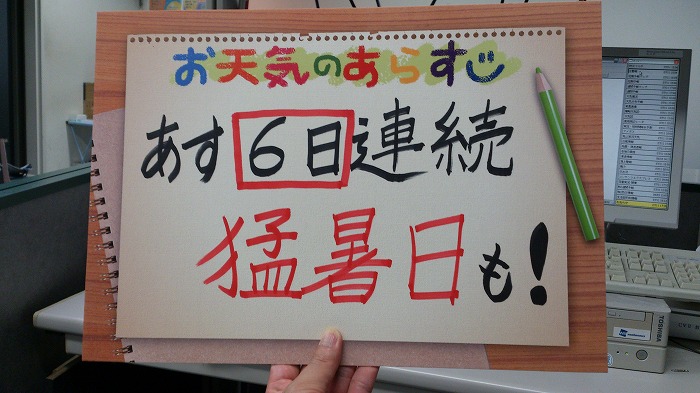 お天気のあらすじ
あす6日連続
猛暑日も!
TOSHIBA